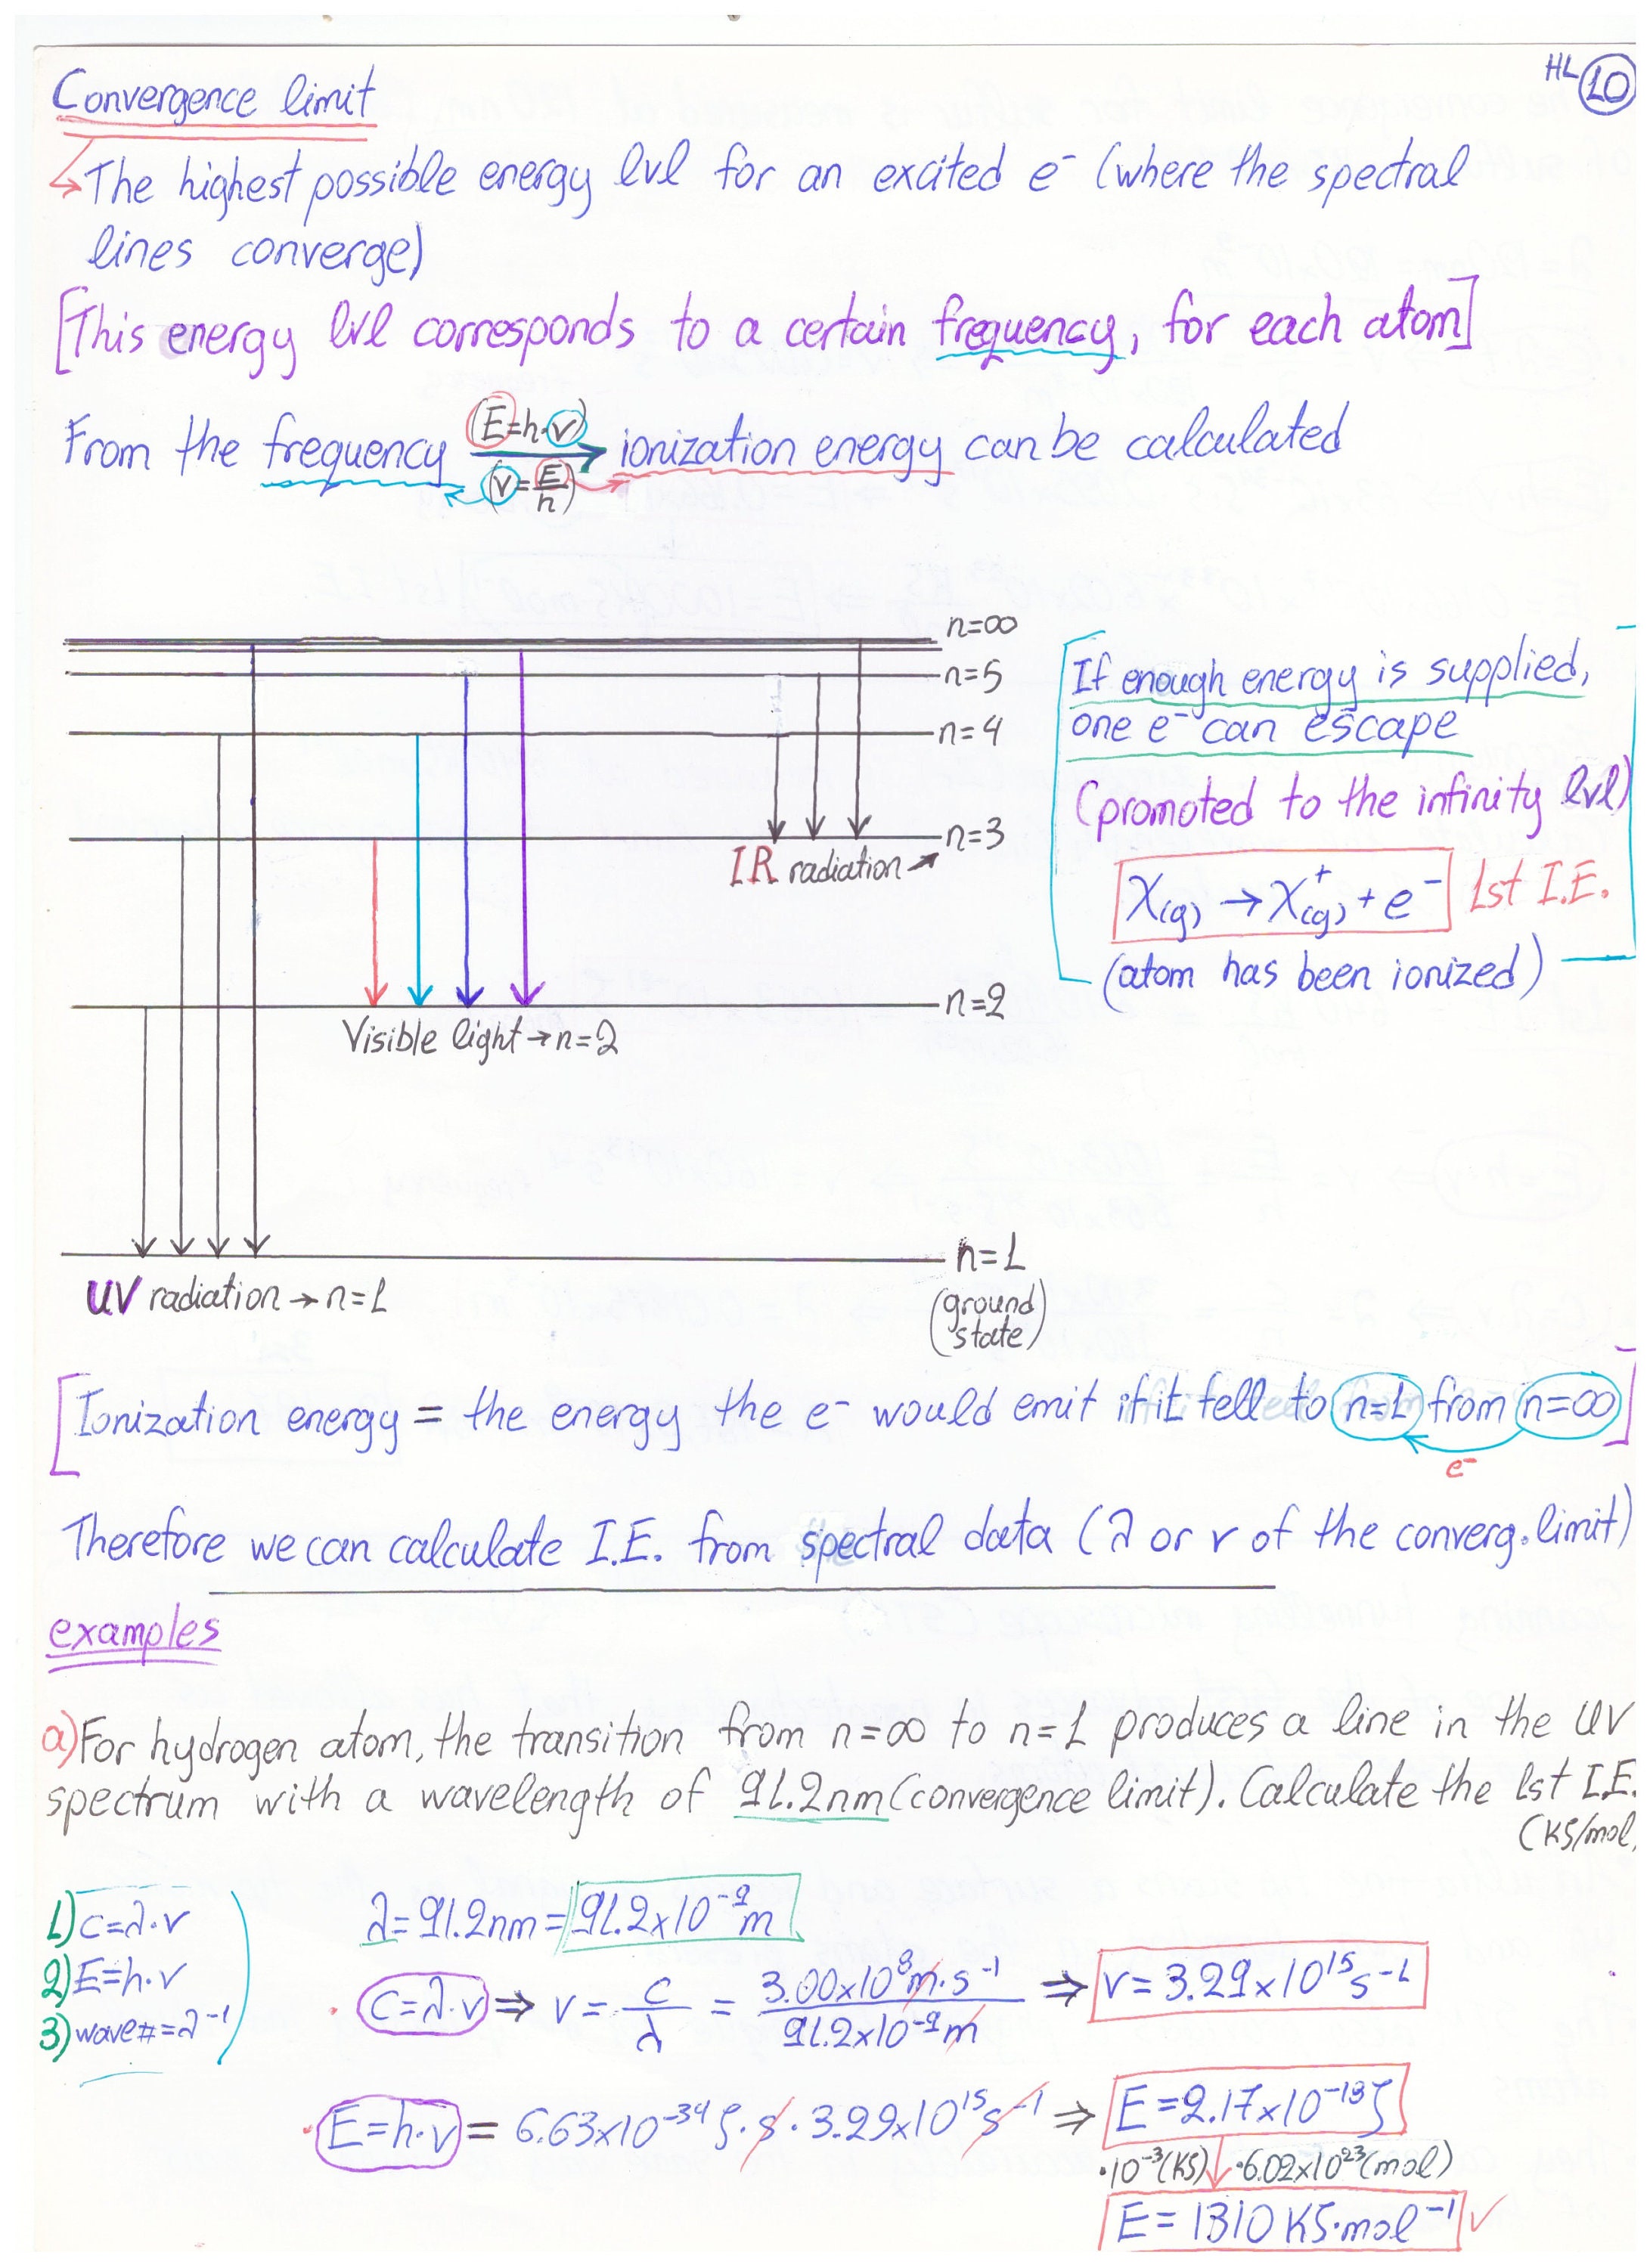 HL 10
Convergence limit
↳ The highest possible energy lvl for an excited e⁻ (where the spectral
lines converge)
[This energy lvl corresponds to a certain frequency, for each atom]
(E=h·v)
From the frequency → ionization energy can be calculated
(v=E/h)
n=∞
n=5
n=4
n=3
IR radiation ↗
n=2
Visible light → n=2
n=1
(ground state)
UV radiation → n=1
If enough energy is supplied,
one e⁻ can escape
(promoted to the infinity lvl)
X(g) → X⁺(g) + e⁻ 1st I.E.
(atom has been ionized)
[Ionization energy = the energy the e⁻ would emit if it fell to n=1 from n=∞]
e⁻
Therefore we can calculate I.E. from spectral data (λ or v of the converg. limit)
examples
a) For hydrogen atom, the transition from n=∞ to n=1 produces a line in the UV
spectrum with a wavelength of 91.2nm (convergence limit). Calculate the 1st I.E.
(KJ/mol
1) C=λ·v
2) E=h·v
3) wave#=λ⁻¹
λ=91.2nm=91.2x10⁻⁹m
• C=λ·v ⇒ v = C/λ = 3.00x10⁸m·s⁻¹ / 91.2x10⁻⁹m ⇒ v=3.29x10¹⁵s⁻¹
• E=h·v = 6.63x10⁻³⁴J·s · 3.29x10¹⁵s⁻¹ ⇒ E=2.17x10⁻¹⁸J
·10⁻³(KJ) ↓ ·6.02x10²³(mol)
E = 1310 KJ·mol⁻¹ ✓